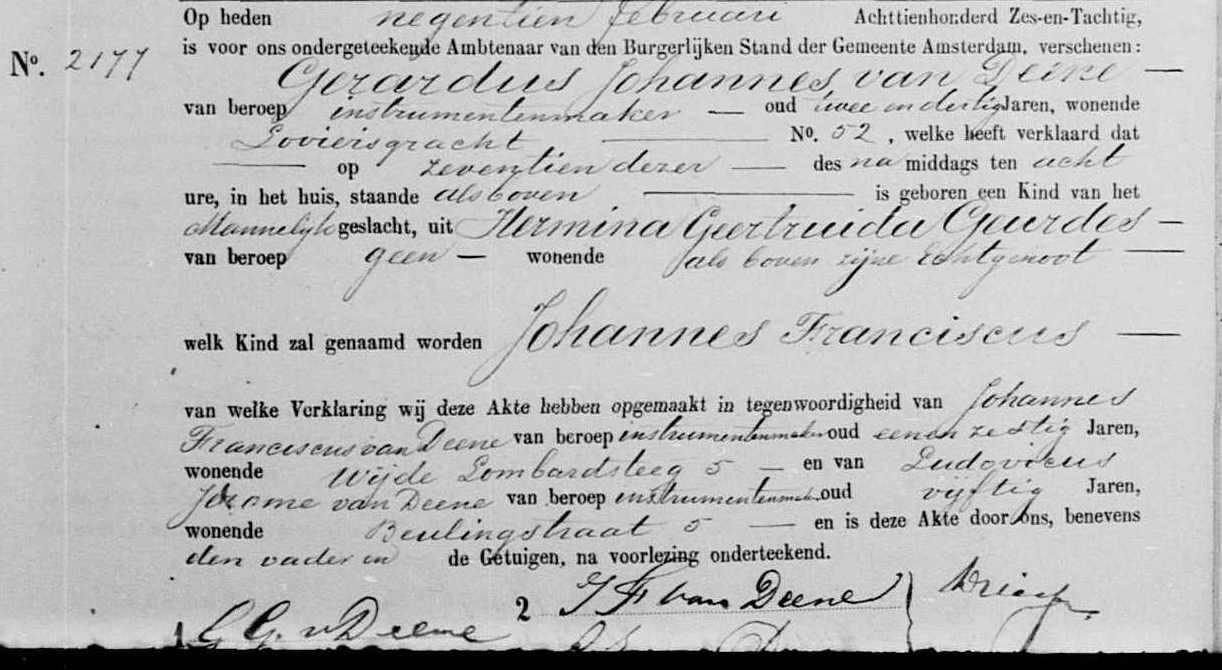 Op heden negentien februari Achttienhonderd Zes-en-Tachtig,
is voor ons ondergeteekende Ambtenaar van den Burgerlijken Stand der Gemeente Amsterdam, verschenen:
No. 2177
Gerardus Johannes van Deene
van beroep instrumentenmaker oud twee en dertig Jaren, wonende
Loviersgracht No. 52, welke heeft verklaard dat
op zeventien dezer des na middags ten acht
ure, in het huis, staande als boven is geboren een Kind van het
Mannelijk geslacht, uit Hermina Geertruida Geurdes
van beroep geen wonende als boven zijne Echtgenoot
welk Kind zal genaamd worden Johannes Franciscus
van welke Verklaring wij deze Akte hebben opgemaakt in tegenwoordigheid van Johannes
Franciscus van Deene van beroep instrumentenmaker oud een en zestig Jaren,
wonende Wijde Lombardsteeg 5 en van Ludovicus
Jerome van Deene van beroep instrumentenmak. oud vijftig Jaren,
wonende Beulingstraat 5 en is deze Akte door ons, benevens
den vader en de Getuigen, na voorlezing onderteekend.
2 J F van Deene
G G. v Deene